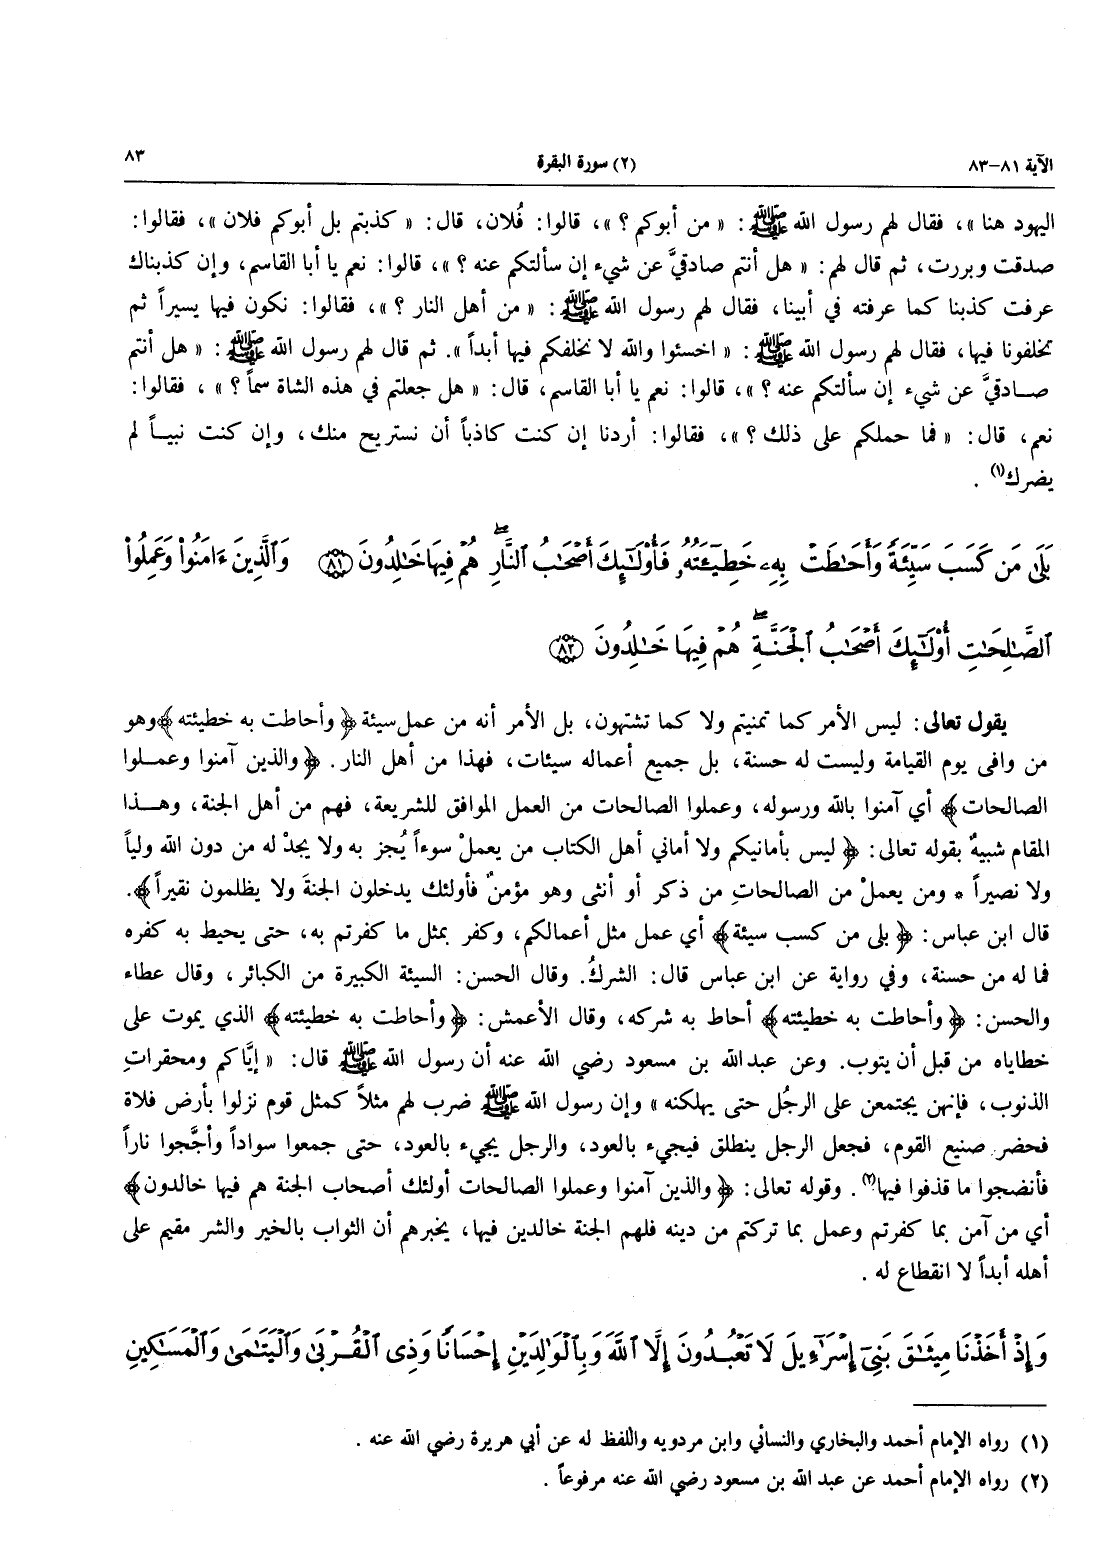 الآية ٨١-٨٣ (٢) سورة البقرة ٨٣
اليهود هنا »، فقال لهم رسول الله ﷺ : « من أبوكم ؟ »، قالوا: فُلان، قال: « كذبتم بل أبوكم فلان »، فقالوا:
صدقت وبررت، ثم قال لهم: « هل أنتم صادقيَّ عن شيء إن سألتكم عنه ؟ »، قالوا: نعم يا أبا القاسم، وإن كذبناك
عرفت كذبنا كما عرفته في أبينا، فقال لهم رسول الله ﷺ : « من أهل النار ؟ »، فقالوا: نكون فيها يسيراً ثم
تخلفونا فيها، فقال لهم رسول الله ﷺ : « اخسئوا والله لا نخلفكم فيها أبداً ». ثم قال لهم رسول الله ﷺ : « هل أنتم
صادقيَّ عن شيء إن سألتكم عنه ؟ »، قالوا: نعم يا أبا القاسم، قال: « هل جعلتم في هذه الشاة سماً ؟ » ، فقالوا:
نعم، قال: « فما حملكم على ذلك ؟ »، فقالوا: أردنا إن كنت كاذباً أن نستريح منك، وإن كنت نبياً لم
يضرك(١) .
بَلَىٰ مَن كَسَبَ سَيِّئَةً وَأَحَـٰطَتْ بِهِۦ خَطِيٓـَٔتُهُۥ فَأُو۟لَـٰٓئِكَ أَصْحَـٰبُ ٱلنَّارِ ۖ هُمْ فِيهَا خَـٰلِدُونَ ﴿٨١﴾ وَٱلَّذِينَ ءَامَنُوا۟ وَعَمِلُوا۟
ٱلصَّـٰلِحَـٰتِ أُو۟لَـٰٓئِكَ أَصْحَـٰبُ ٱلْجَنَّةِ ۖ هُمْ فِيهَا خَـٰلِدُونَ ﴿٨٢﴾
يقول تعالى: ليس الأمر كما تمنيتم ولا كما تشتهون، بل الأمر أنه من عمل سيئة ﴿ وأحاطت به خطيئته ﴾ وهو
من وافى يوم القيامة وليست له حسنة، بل جميع أعماله سيئات، فهذا من أهل النار. ﴿ والذين آمنوا وعملوا
الصالحات ﴾ أي آمنوا بالله ورسوله، وعملوا الصالحات من العمل الموافق للشريعة، فهم من أهل الجنة، وهذا
المقام شبيهٌ بقوله تعالى: ﴿ ليس بأمانيكم ولا أماني أهل الكتاب من يعملْ سوءاً يُجز به ولا يجدْ له من دون الله ولياً
ولا نصيراً * ومن يعملْ من الصالحاتِ من ذكر أو أنثى وهو مؤمنٌ فأولئك يدخلون الجنةَ ولا يظلمون نقيراً ﴾.
قال ابن عباس: ﴿ بلى من كسب سيئة ﴾ أي عمل مثل أعمالكم، وكفر بمثل ما كفرتم به، حتى يحيط به كفره
فما له من حسنة، وفي رواية عن ابن عباس قال: الشركُ. وقال الحسن: السيئة الكبيرة من الكبائر ، وقال عطاء
والحسن: ﴿ وأحاطت به خطيئته ﴾ أحاط به شركه، وقال الأعمش: ﴿ وأحاطت به خطيئته ﴾ الذي يموت على
خطاياه من قبل أن يتوب. وعن عبدالله بن مسعود رضي الله عنه أن رسول الله ﷺ قال: « إيَّاكم ومحقراتِ
الذنوب، فإنهن يجتمعن على الرجُل حتى يهلكنه » وإن رسول الله ﷺ ضرب لهم مثلاً كمثل قوم نزلوا بأرض فلاة
فحضر صنيع القوم، فجعل الرجل ينطلق فيجيء بالعود، والرجل يجيء بالعود، حتى جمعوا سواداً وأجَّجوا ناراً
فأنضجوا ما قذفوا فيها(٢) . وقوله تعالى: ﴿ والذين آمنوا وعملوا الصالحات أولئك أصحاب الجنة هم فيها خالدون ﴾
أي من آمن بما كفرتم وعمل بما تركتم من دينه فلهم الجنة خالدين فيها، يخبرهم أن الثواب بالخير والشر مقيم على
أهله أبداً لا انقطاع له .
وَإِذْ أَخَذْنَا مِيثَـٰقَ بَنِىٓ إِسْرَٰٓءِيلَ لَا تَعْبُدُونَ إِلَّا ٱللَّهَ وَبِٱلْوَٰلِدَيْنِ إِحْسَانًا وَذِى ٱلْقُرْبَىٰ وَٱلْيَتَـٰمَىٰ وَٱلْمَسَـٰكِينِ
(١) رواه الإمام أحمد والبخاري والنسائي وابن مردويه واللفظ له عن أبي هريرة رضي الله عنه .
(٢) رواه الإمام أحمد عن عبد الله بن مسعود رضي الله عنه مرفوعاً .